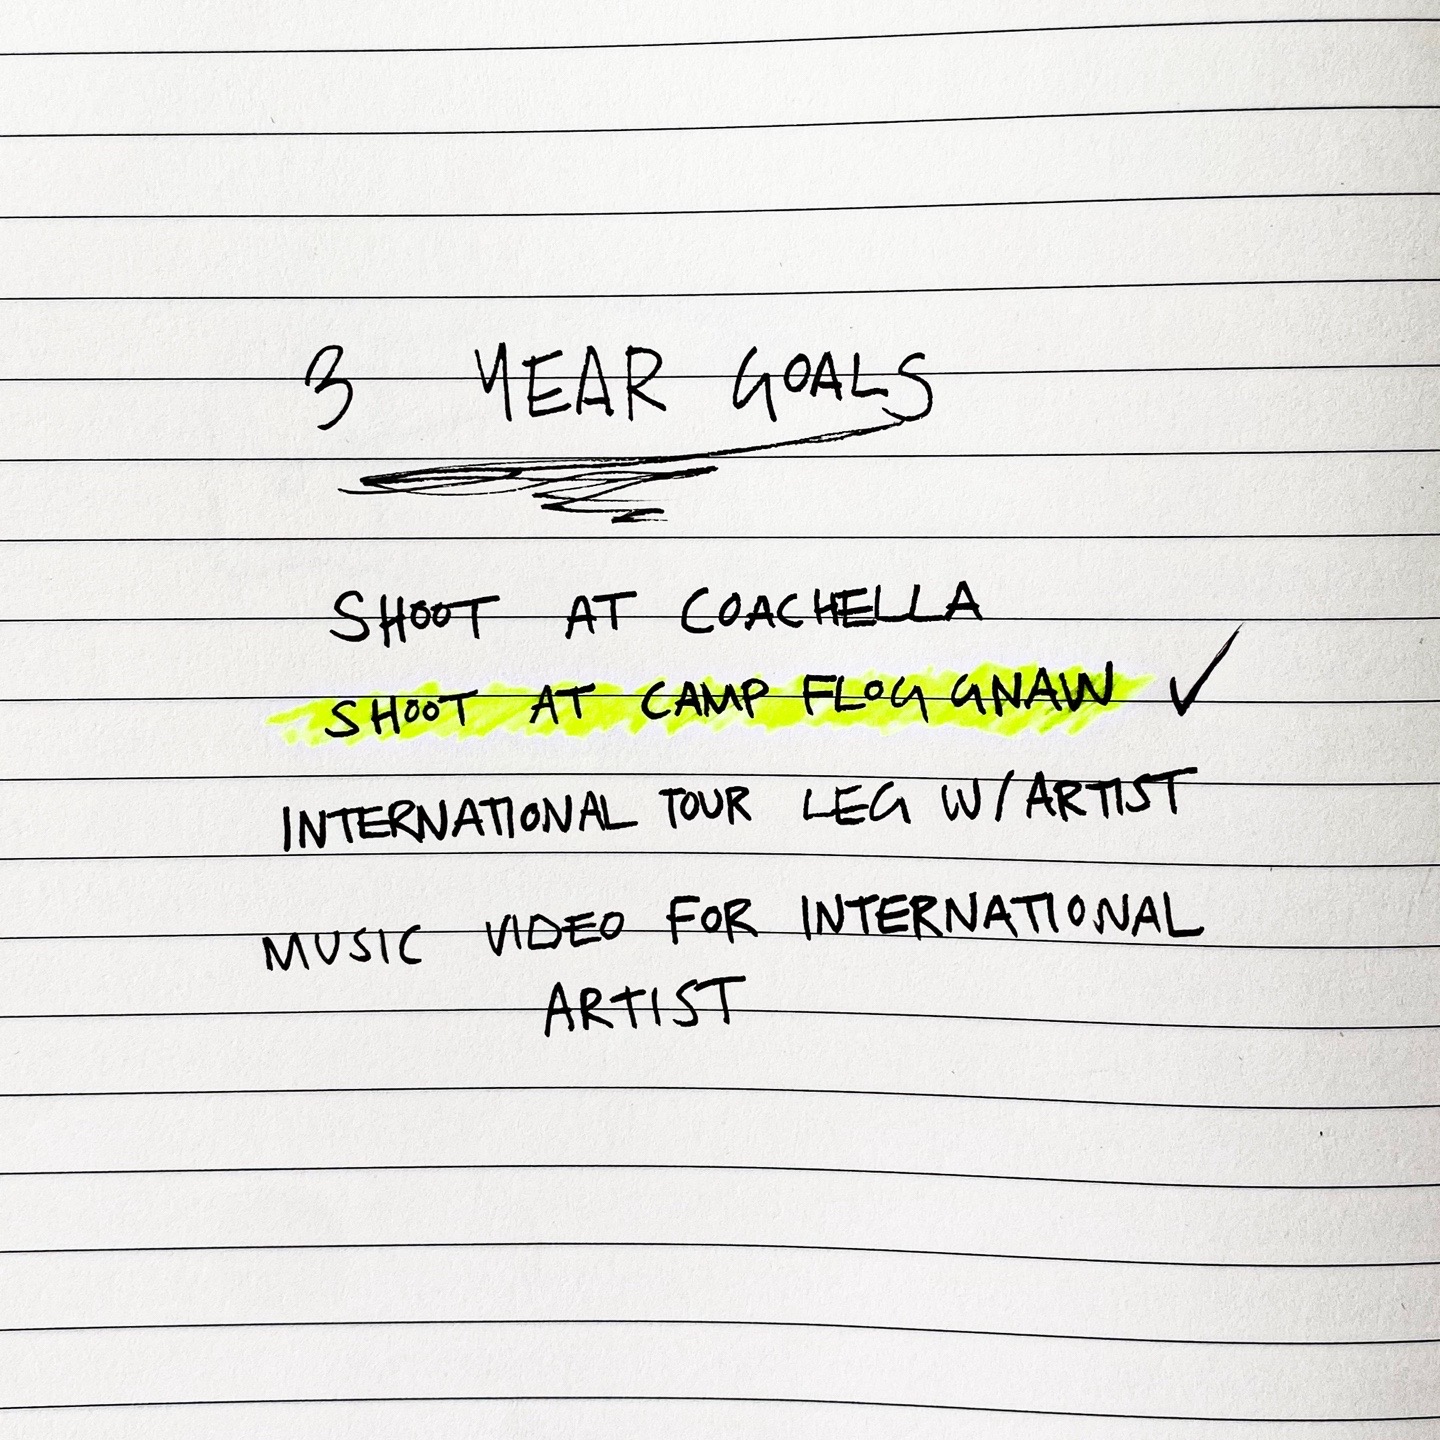 3 YEAR GOALS
SHOOT AT COACHELLA
SHOOT AT CAMP FLOG GNAW ✓
INTERNATIONAL TOUR LEG W/ARTIST
MUSIC VIDEO FOR INTERNATIONAL
ARTIST